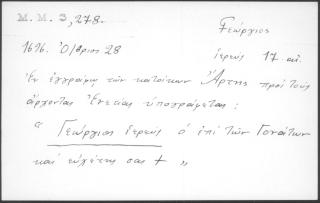 M. M. 3, 278.
Γεώργιος
1696. Ὀ/βριος 28
ἱερεύς 17 αἰ.
Ἐν ἐγγράφῳ τῶν κατοίκων Ἄρτης πρός τούς
ἄρχοντας Ἑνετίας ὑπογράφεται:
"Γεώργιος ἱερεύς ὁ ἐπί τῶν Γονάτων
καί εὐχέτης σας + "